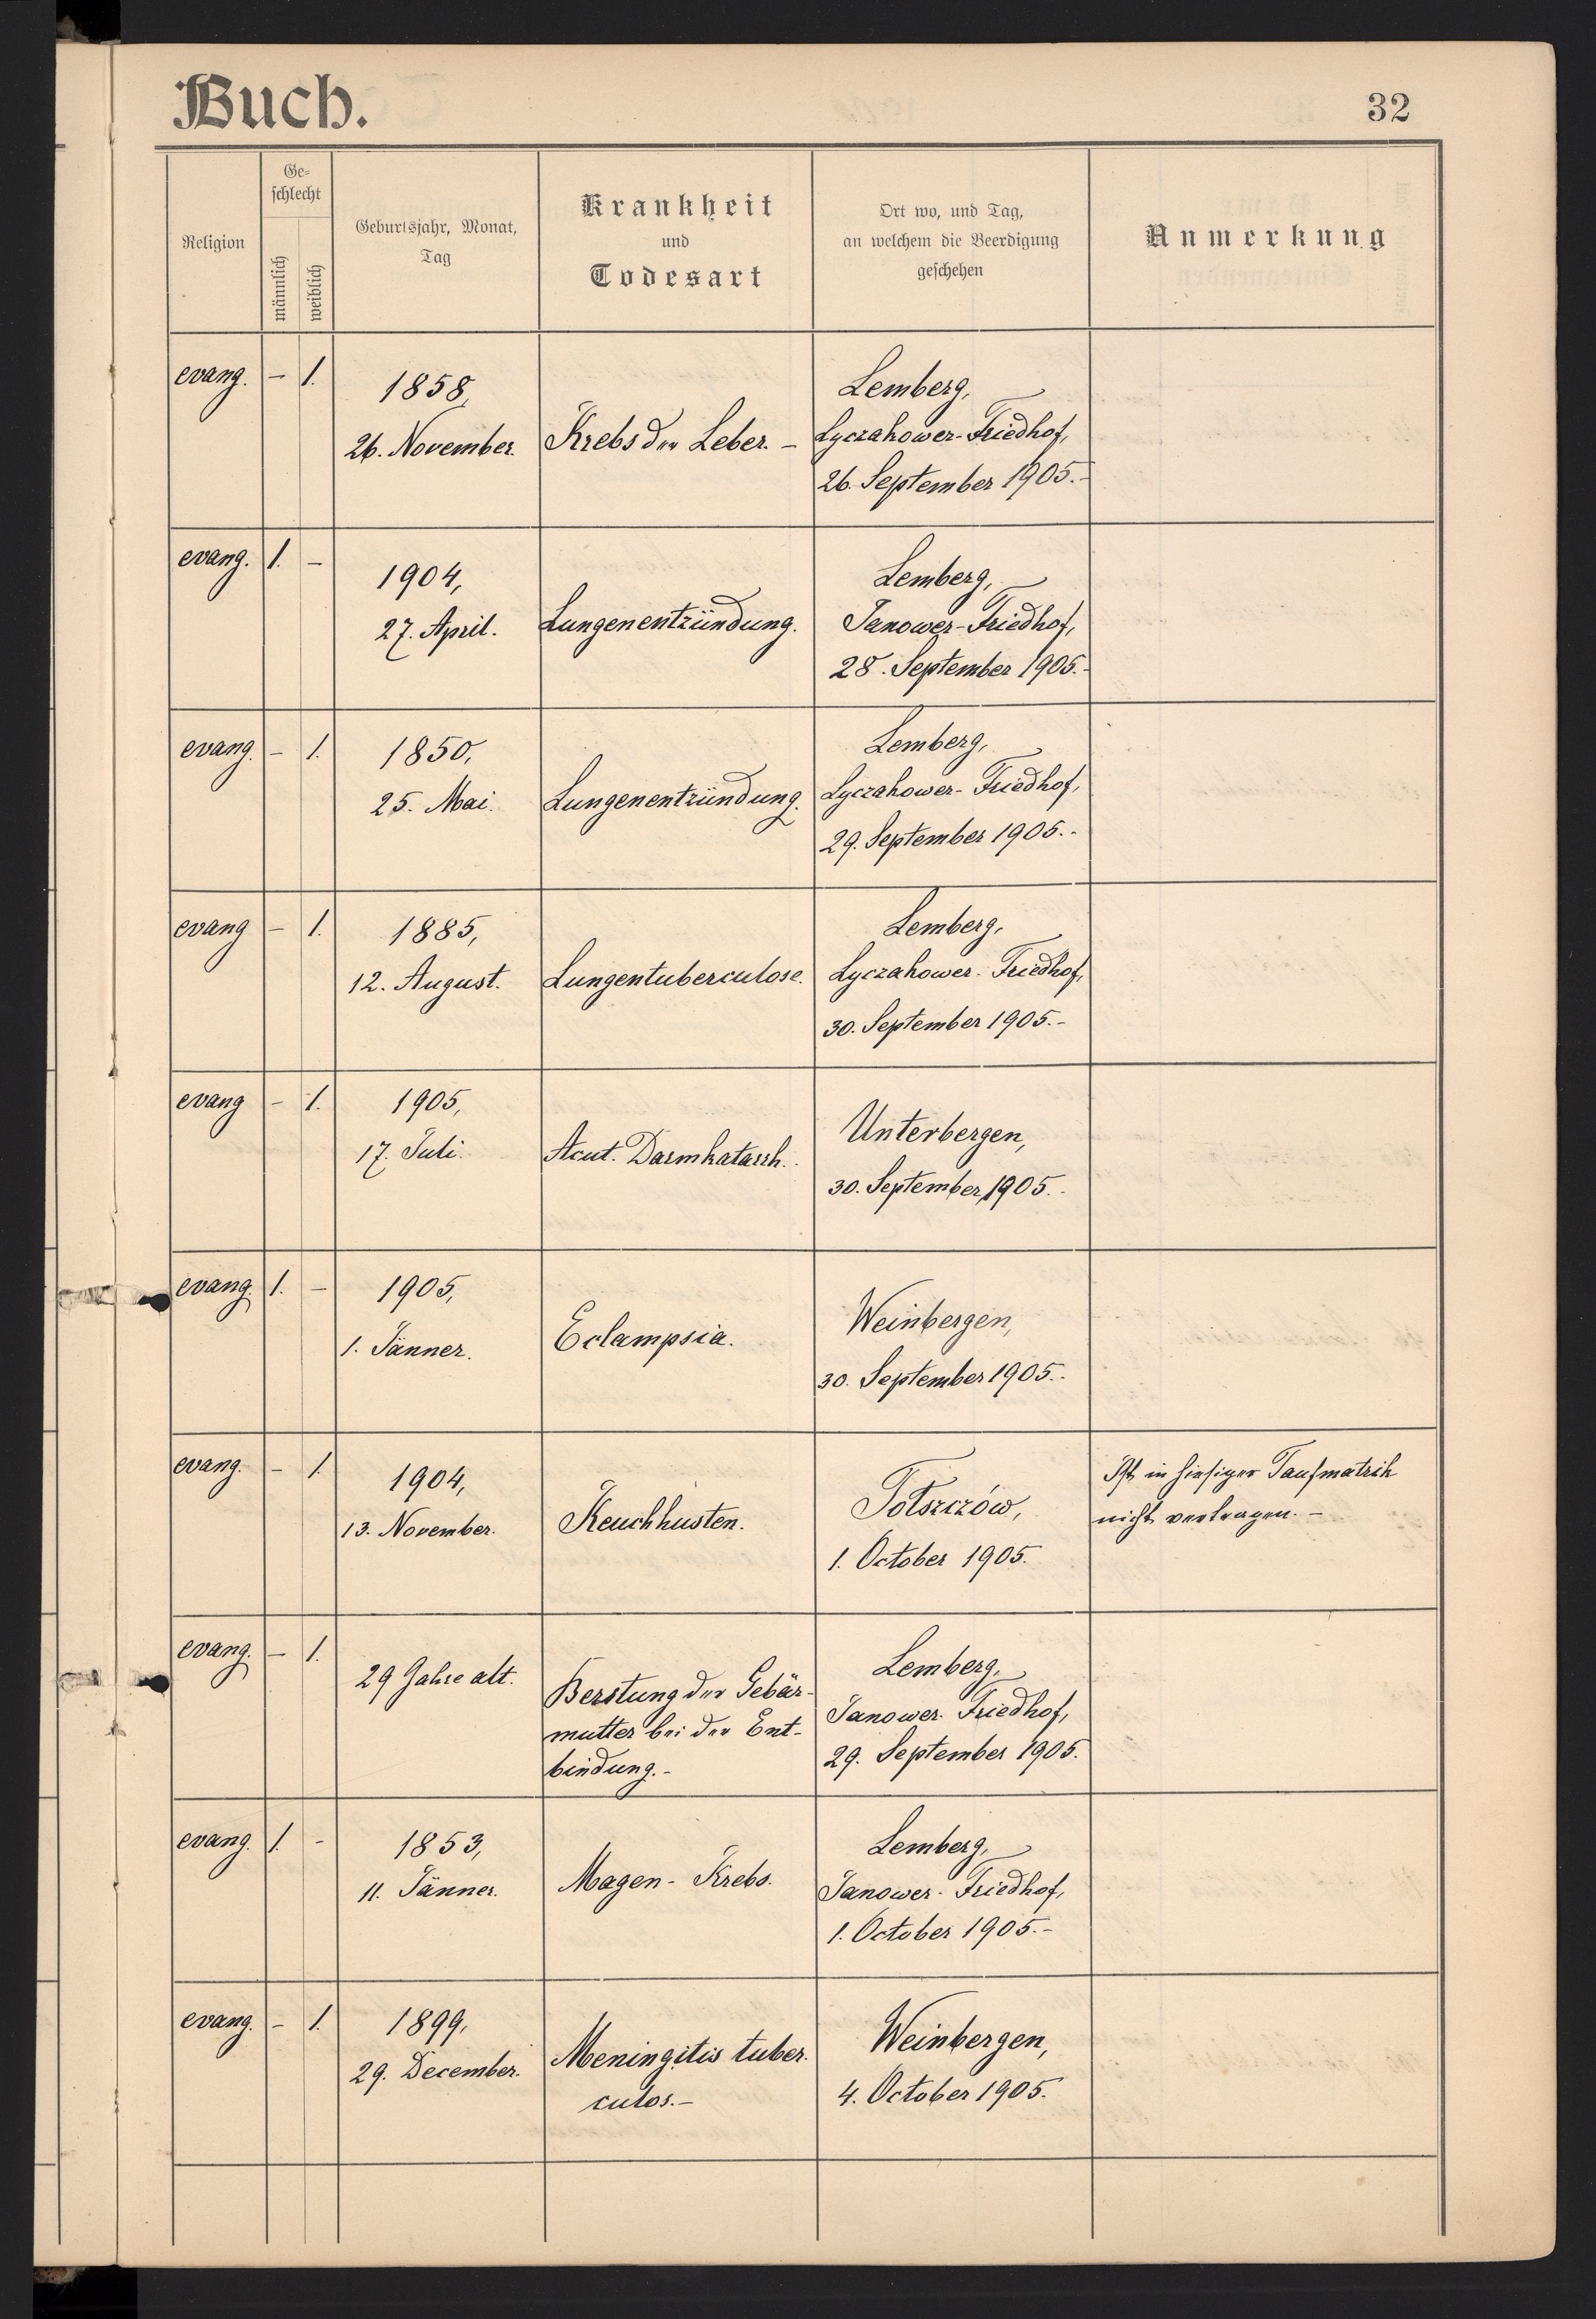 Buch.
32
Religion
Ge-
schlecht
männlich
weiblich
Geburtsjahr, Monat,
Tag
Krankheit
und
Todesart
Ort wo, und Tag,
an welchem die Beerdigung
geschehen
Anmerkung
evang. - 1.
1858,
26. November.
Krebs der Leber. -
Lemberg,
Lyczakower-Friedhof,
26. September 1905.-
evang. 1. -
1904,
27. April.
Lungenentzündung.
Lemberg,
Janower-Friedhof,
28. September 1905.-
evang. - 1.
1850,
25. Mai.
Lungenentzündung.
Lemberg,
Lyczakower-Friedhof,
29. September 1905.-
evang - 1.
1885,
12. August.
Lungentuberculose.
Lemberg,
Lyczakower-Friedhof,
30. September 1905.-
evang - 1.
1905,
17. Juli.
Acut. Darmkatarrh.
Unterbergen,
30. September 1905.-
evang. 1. -
1905,
1. Jänner.
Eclampsia.
Weinbergen,
30. September 1905.-
evang. - 1.
1904,
13. November.
Keuchhusten.
Tołszczów,
1. October 1905.
Ist in hiesiger Taufmatrik
nicht vertragen. -
evang. - 1.
29 Jahre alt.
Berstung der Gebär-
mutter bei der Ent-
bindung.-
Lemberg,
Janower-Friedhof,
29. September 1905.
evang. 1. -
1853,
11. Jänner.
Magen-Krebs.
Lemberg,
Janower-Friedhof,
1. October 1905.-
evang. - 1.
1899,
29. December.
Meningitis tuber-
culos.-
Weinbergen,
4. October 1905.